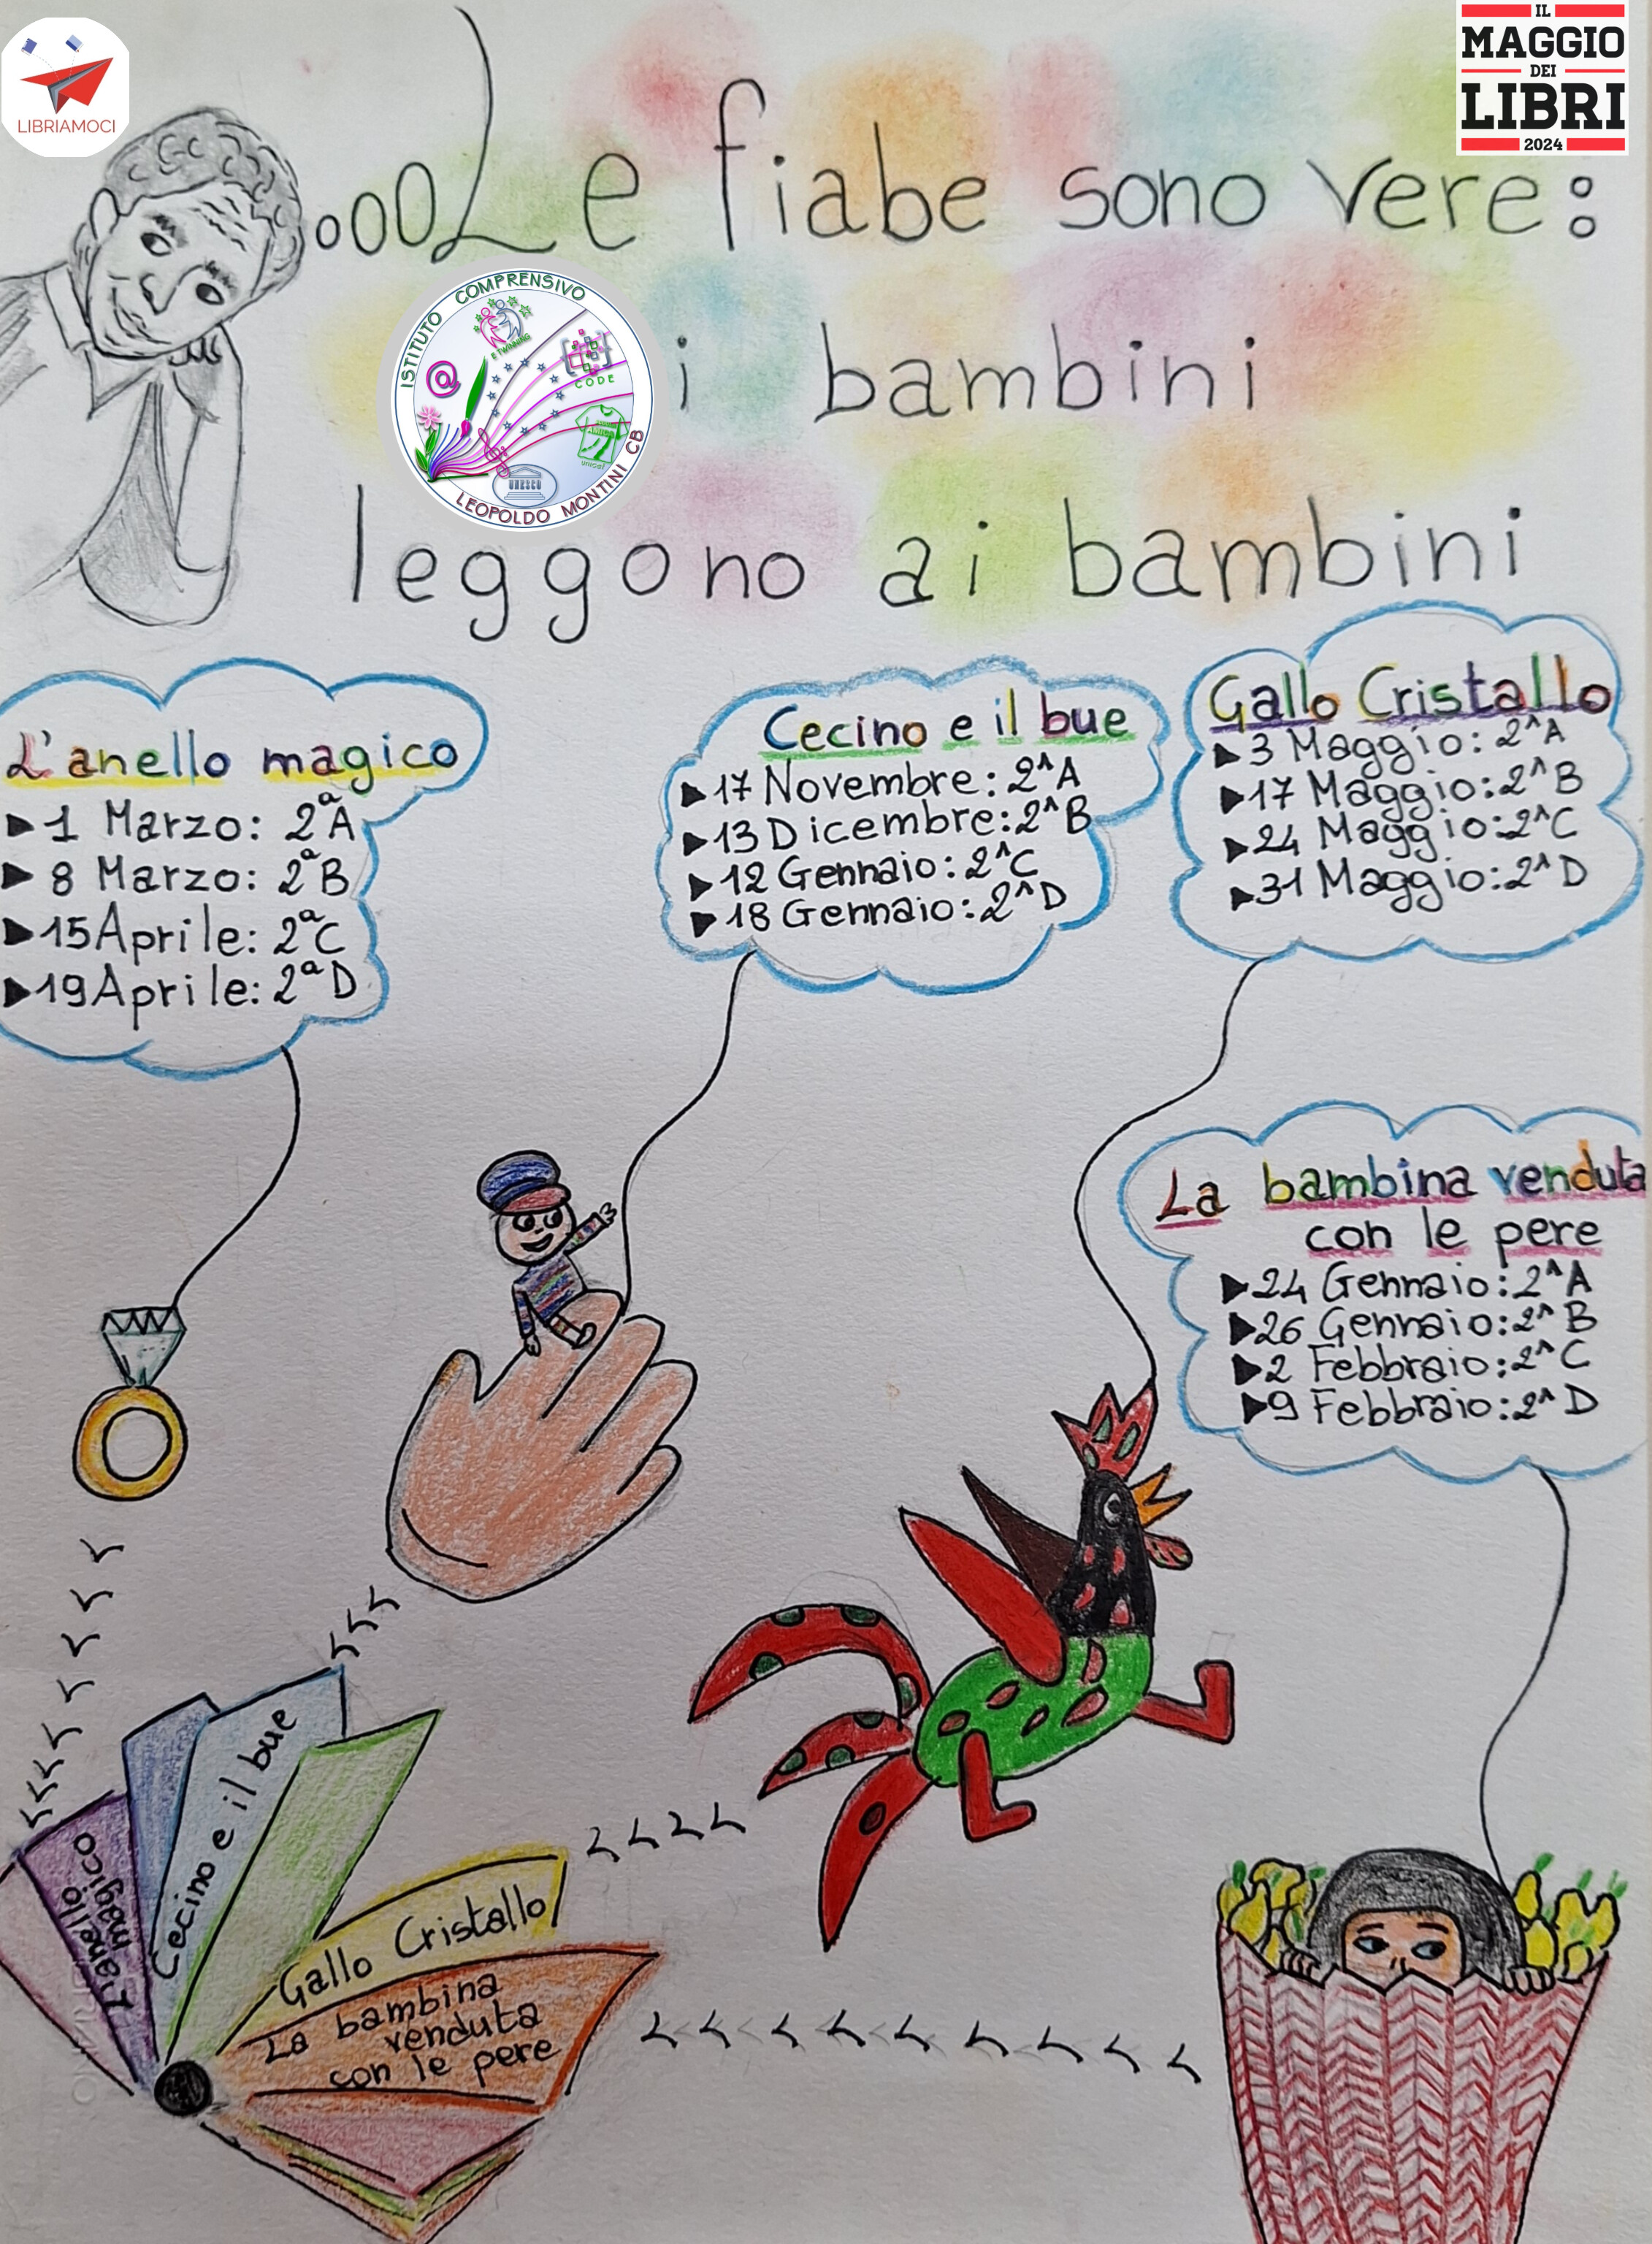 LIBRIAMOCI
IL
MAGGIO
DEI
LIBRI
2024
Le fiabe sono vere:
i bambini
leggono ai bambini
ISTITUTO COMPRENSIVO
E TWINNING
@
CODE
UNESCO
LEOPOLDO MONTINI CB
L'anello magico
►1 Marzo: 2ªA
►8 Marzo: 2ªB
►15 Aprile: 2ªC
►19 Aprile: 2ªD
Cecino e il bue
►17 Novembre: 2^A
►13 Dicembre: 2^B
►12 Gennaio: 2^C
►18 Gennaio: 2^D
Gallo Cristallo
►3 Maggio: 2^A
►17 Maggio: 2^B
►24 Maggio: 2^C
►31 Maggio: 2^D
La bambina venduta
con le pere
►24 Gennaio: 2^A
►26 Gennaio: 2^B
►2 Febbraio: 2^C
►9 Febbraio: 2^D
L'anello
magico
Cecino e il bue
Gallo Cristallo
La bambina
venduta
con le pere